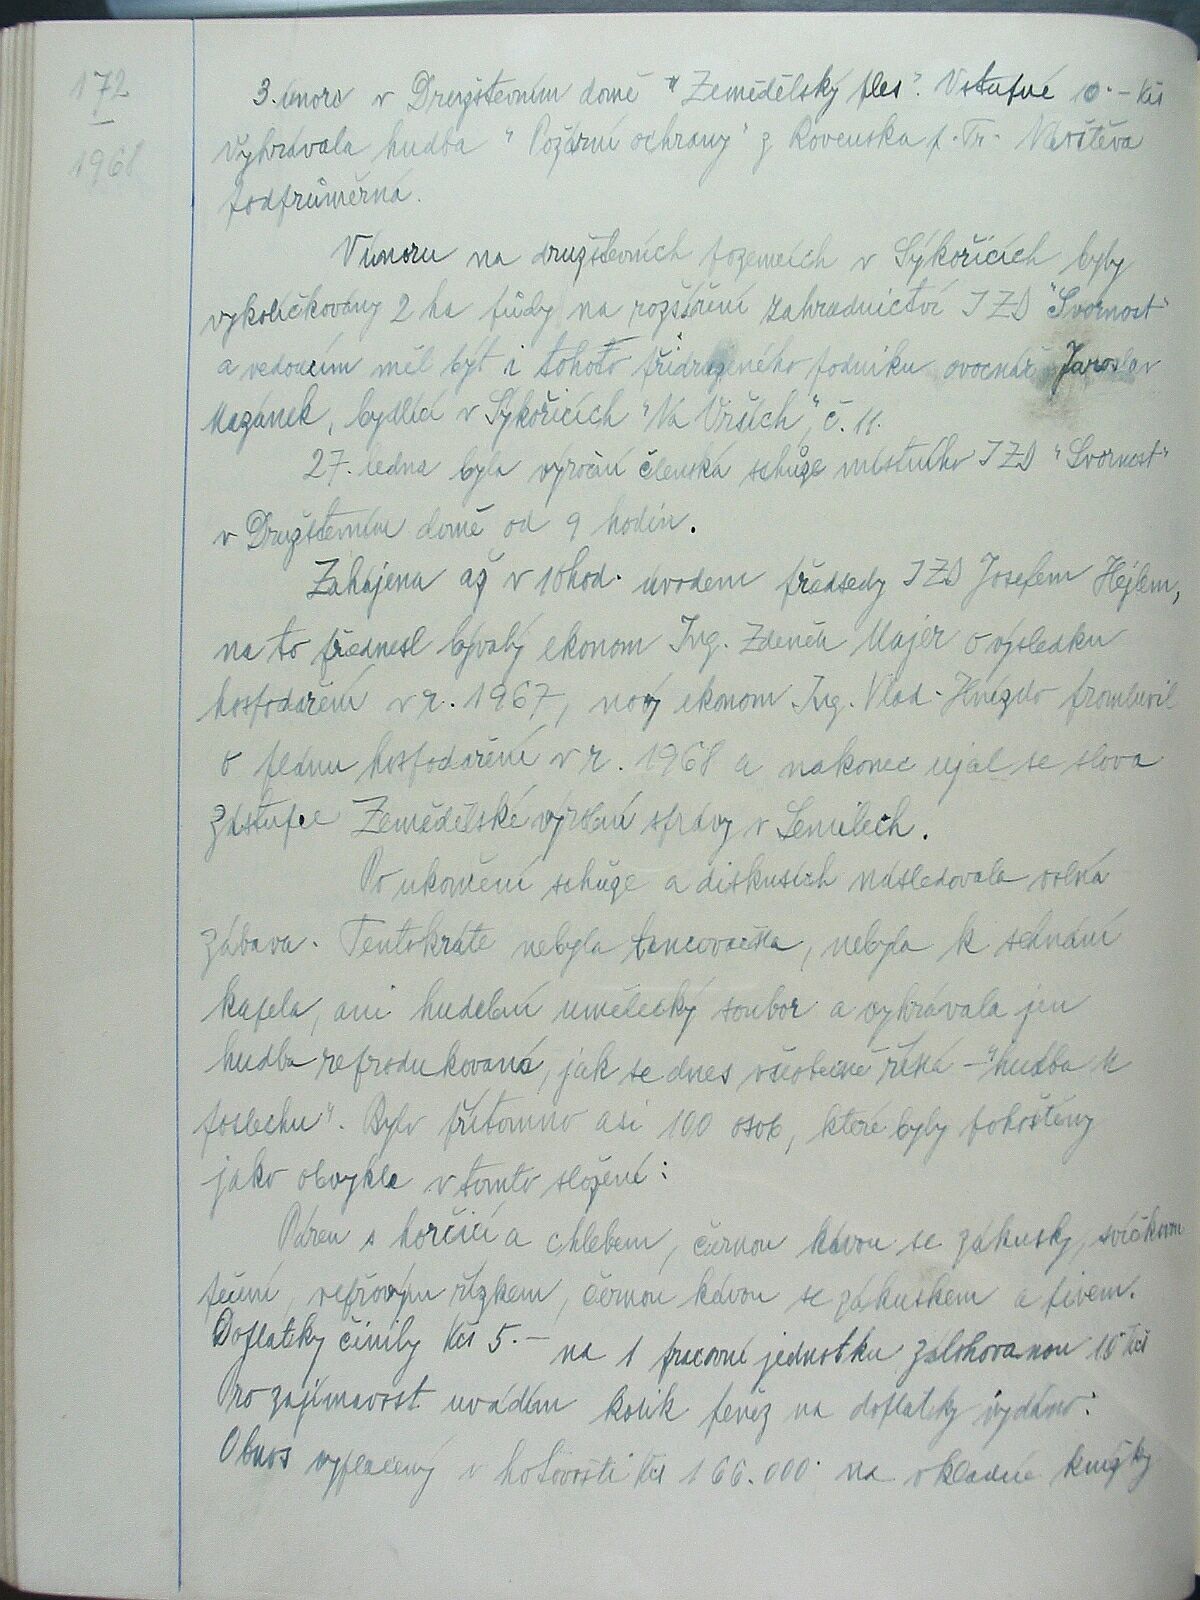 172
1968
3. února v Družstevním domě "Zemědělský ples". Vstupné 10.- Kčs
Vyhrávala hudba "Požární ochrany" z Rovenska p. Tr. Návštěva
podprůměrná.
V únoru na družstevních pozemcích v Sýkořicích byly
vykolíčkovány 2 ha půdy na rozšíření zahradnictví JZD "Svornost"
a vedoucím měl být i tohoto přidruženého podniku ovocnář Jaroslav
Mazánek, bydlící v Sýkořicích "Na Vrších", č. 11.
27. ledna byla výroční členská schůze místního JZD "Svornost"
v Družstevním domě od 9 hodin.
Zahájena až v 10 hod. úvodem předsedy JZD Josefem Hejlem,
na to přednesl bývalý ekonom Ing. Zdeněk Majer o výsledku
hospodaření v r. 1967, nový ekonom Ing. Vlad. Hnízdo promluvil
o plánu hospodaření v r. 1968 a nakonec ujal se slova
zástupce Zemědělské výrobní správy v Semilech.
Po ukončení schůze a diskusích následovala volná
zábava. Tentokráte nebyla tancovačka, nebyla k sehnání
kapela, ani hudební umělecký soubor a vyhrávala jen
hudba reprodukovaná, jak se dnes všeobecně říká - "hudba k
poslechu". Bylo přítomno asi 100 osob, které byly pohoštěny
jako obvykle v tomto složení:
Párem s hořčicí a chlebem, černou kávou se zákusky, svíčkovou
pečení, vepřovým řízkem, černou kávou se zákuskem a pivem.
Doplatky činily Kčs 5.- na 1 pracovní jednotku zálohovanou 15 Kčs
Pro zajímavost uvádím kolik peněz na doplatky vydáno:
Obnos vyplacený v hotovosti Kčs 166.000 na vkladné knížky